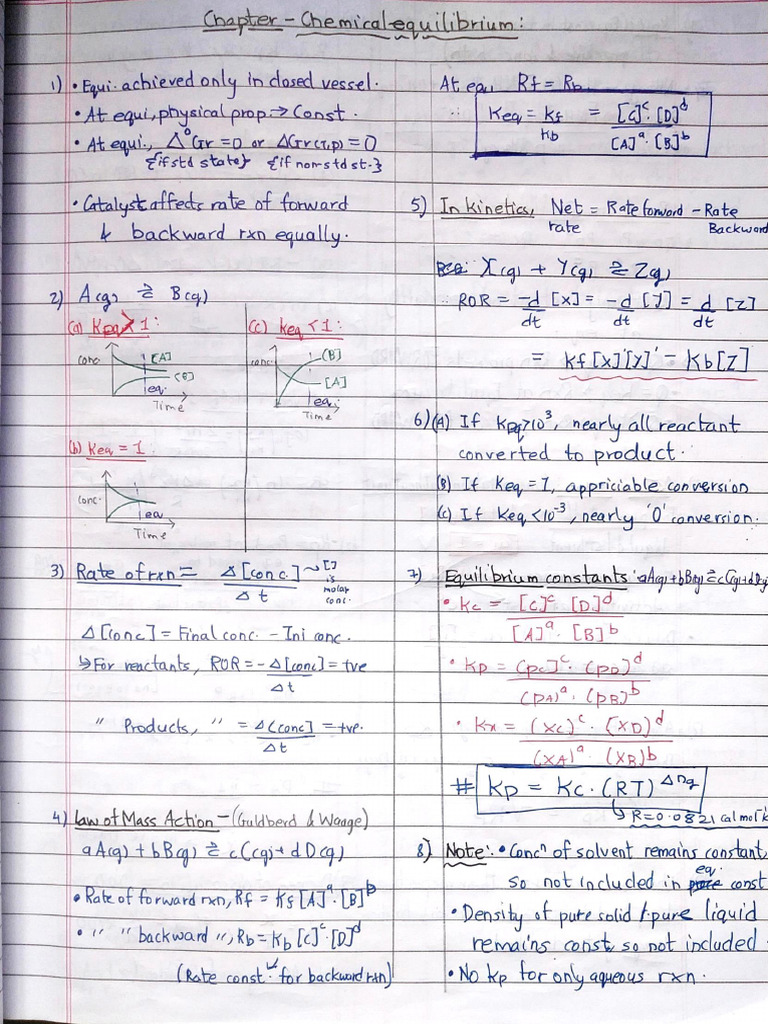 Chapter - Chemical equilibrium:
1) • Equi. achieved only in closed vessel.
• At equi, physical prop. → Const.
• At equi., Δ°Gr = 0 or ΔGr(T,p) = 0
{if std state} {if non std st.}
• Catalyst affects rate of forward
& backward rxn equally.
2) A(g) ⇌ B(g)
(a) Keq > 1:
conc
[A]
(B)
eq.
Time
(c) keq < 1:
conc.
(B)
[A]
eq.
Time
(b) Keq = 1:
conc.
eq
Time
3) Rate of rxn = Δ[conc.] / Δt ~ [] is molar conc.
Δ[conc] = Final conc. - Ini conc.
↳ For reactants, ROR = -Δ[conc] / Δt = +ve
" Products, " = Δ[conc] / Δt = +ve.
4) Law of Mass Action - (Guldberd & Waage)
aA(g) + bB(g) ⇌ cC(g) + dD(g)
• Rate of forward rxn, Rf = Kf [A]^a . [B]^b
• " " backward ", Rb = Kb [C]^c . [D]^d
(Rate const. for backward rxn)
At equ, Rf = Rb
∴ Keq = kf / Kb = [C]^c . [D]^d / [A]^a . [B]^b
5) In kinetics, Net rate = Rate forward - Rate Backward
X(g) + Y(g) ⇌ Z(g)
∴ ROR = -d/dt [X] = -d/dt [Y] = d/dt [Z]
= Kf [X] [Y]' - Kb [Z]
6) (A) If Keq > 10^3, nearly all reactant
converted to product.
(B) If Keq = 1, appriciable conversion
(C) If Keq < 10^-3, nearly '0' conversion.
7) Equilibrium constants: aA(g) + bB(g) ⇌ cC(g) + dD(g)
• Kc = [C]^c [D]^d / [A]^a . [B]^b
• Kp = (pC)^c . (pD)^d / (pA)^a . (pB)^b
• Kx = (XC)^c . (XD)^d / (XA)^a . (XB)^b
# Kp = Kc . (RT)^Δng
↳ R = 0.0821 cal mol^-1 k
8) Note: • Concn of solvent remains constant,
so not included in eq. const
• Density of pure solid / pure liquid
remains const, so not included.
• No Kp for only aqueous rxn.